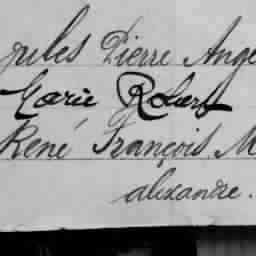 Jules Pierre Ange
Marie Robert
René François M
alexandre.